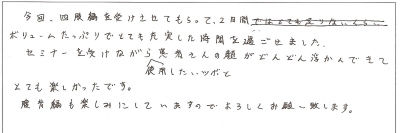 今回、四肢編を受けさせてもらって、2日間
ボリュームたっぷりでとても充実した時間を過ごせました。
セミナーを受けながら患者さんの顔がどんどん浮かんできて
使用したいツボと
とても楽しかったです。
腹背編も楽しみにしていますのでよろしくお願い致します。